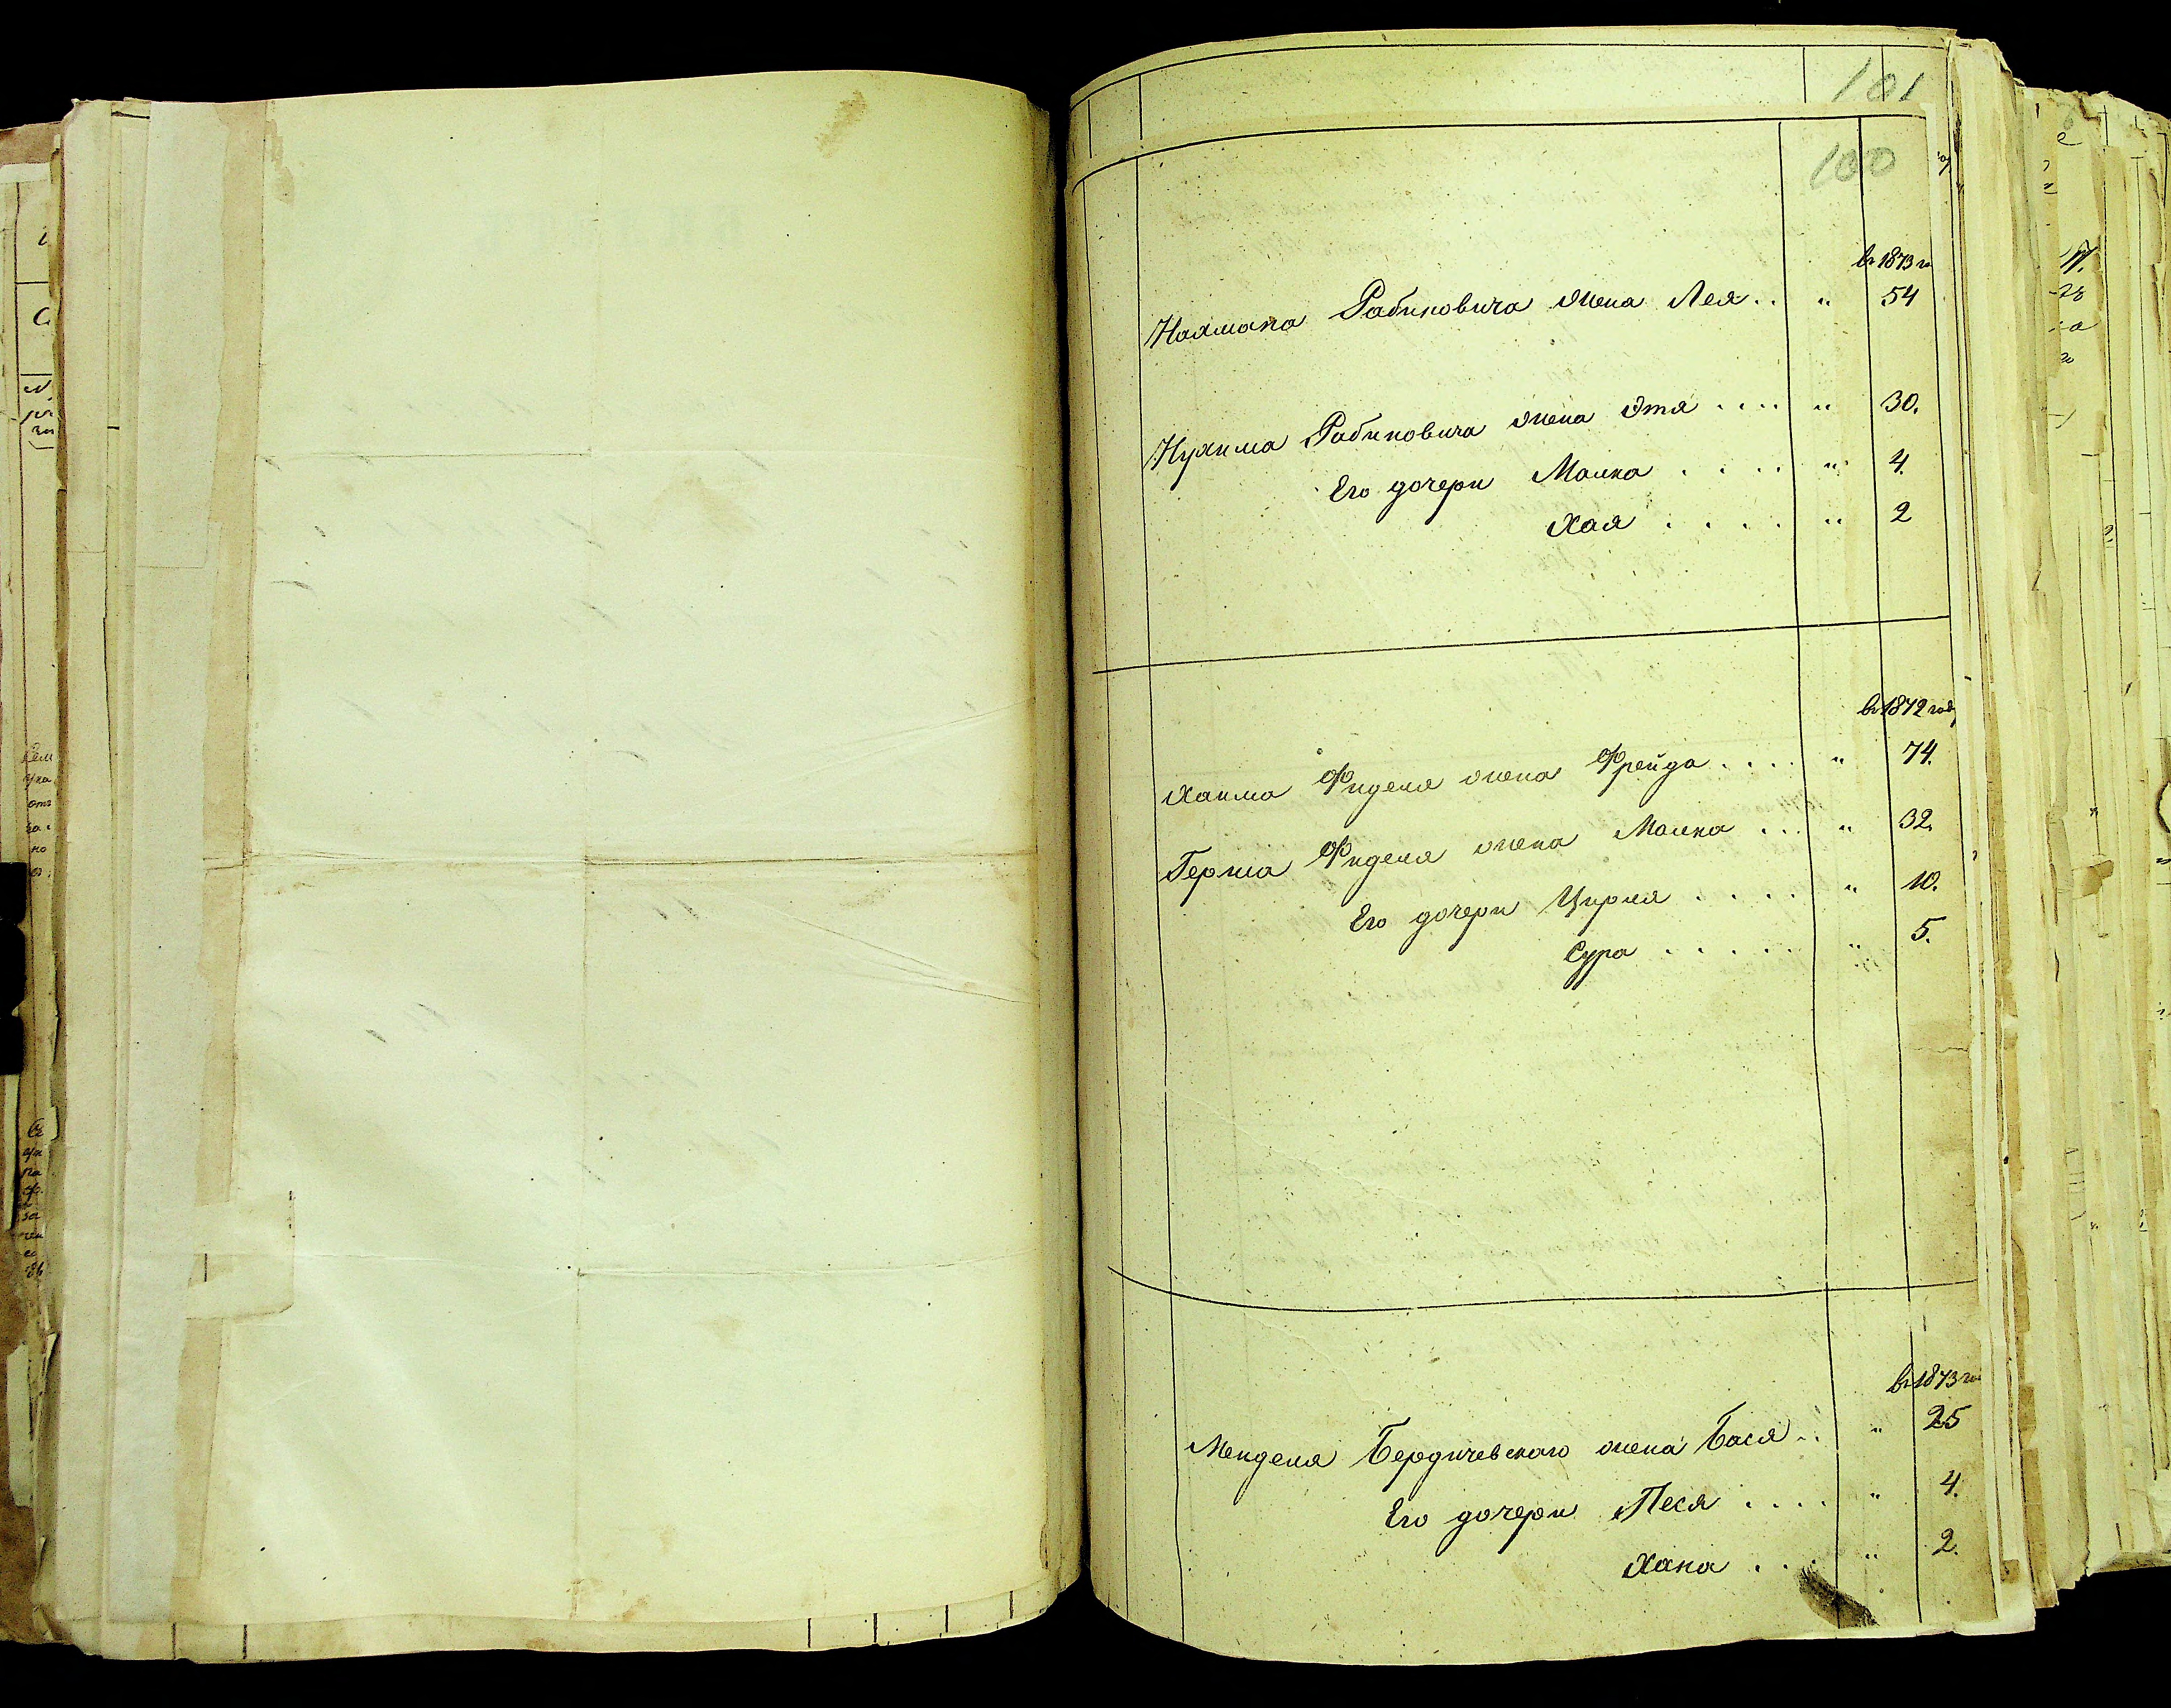 101
100
въ 1873 го
Нахмана Рабиновича жена Лея . . " 54
Нухима Рабиновича жена Этя . . . . " 30.
Его дочери Малка . . . . " 4.
Хая . . . . " 2
въ 1872 году
Хаима Фиделя жена Фрейда . . . . " 74.
Герша Фиделя жена Малка . . . " 32.
Его дочери Цирля . . . . " 10.
Сура . . . . . " 5.
въ 1873 го
Менделя Бердичевскаго жена Бася . . " 25
Его дочери Песя . . . . " 4.
Хана . . . " 2.